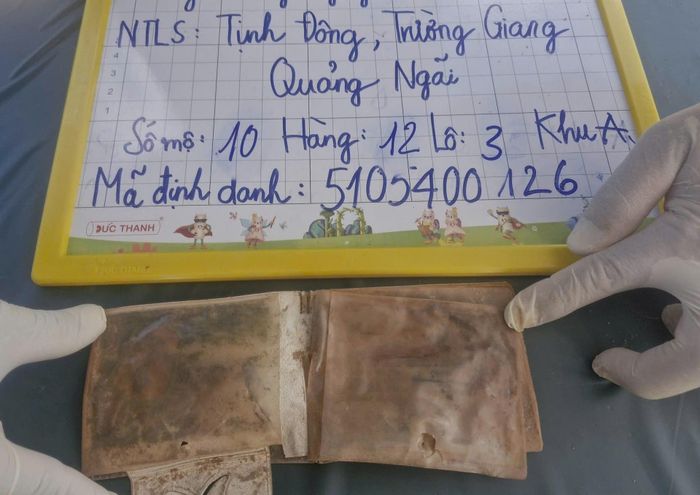 NTLS: Tịnh Đông, Trường Giang
Quảng Ngãi
Số mộ: 10 Hàng: 12 Lô: 3 Khu A.
Mã định danh: 5105400126
ĐỨC THANH